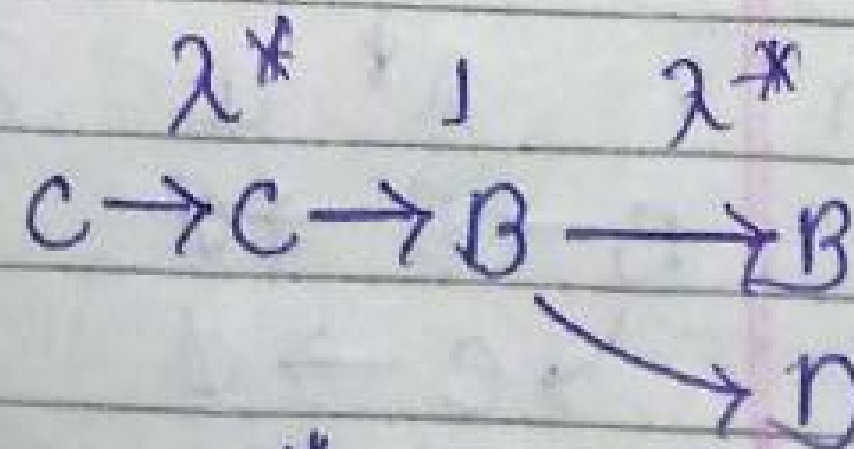 λ* 1 λ*
C → C → B → B
D